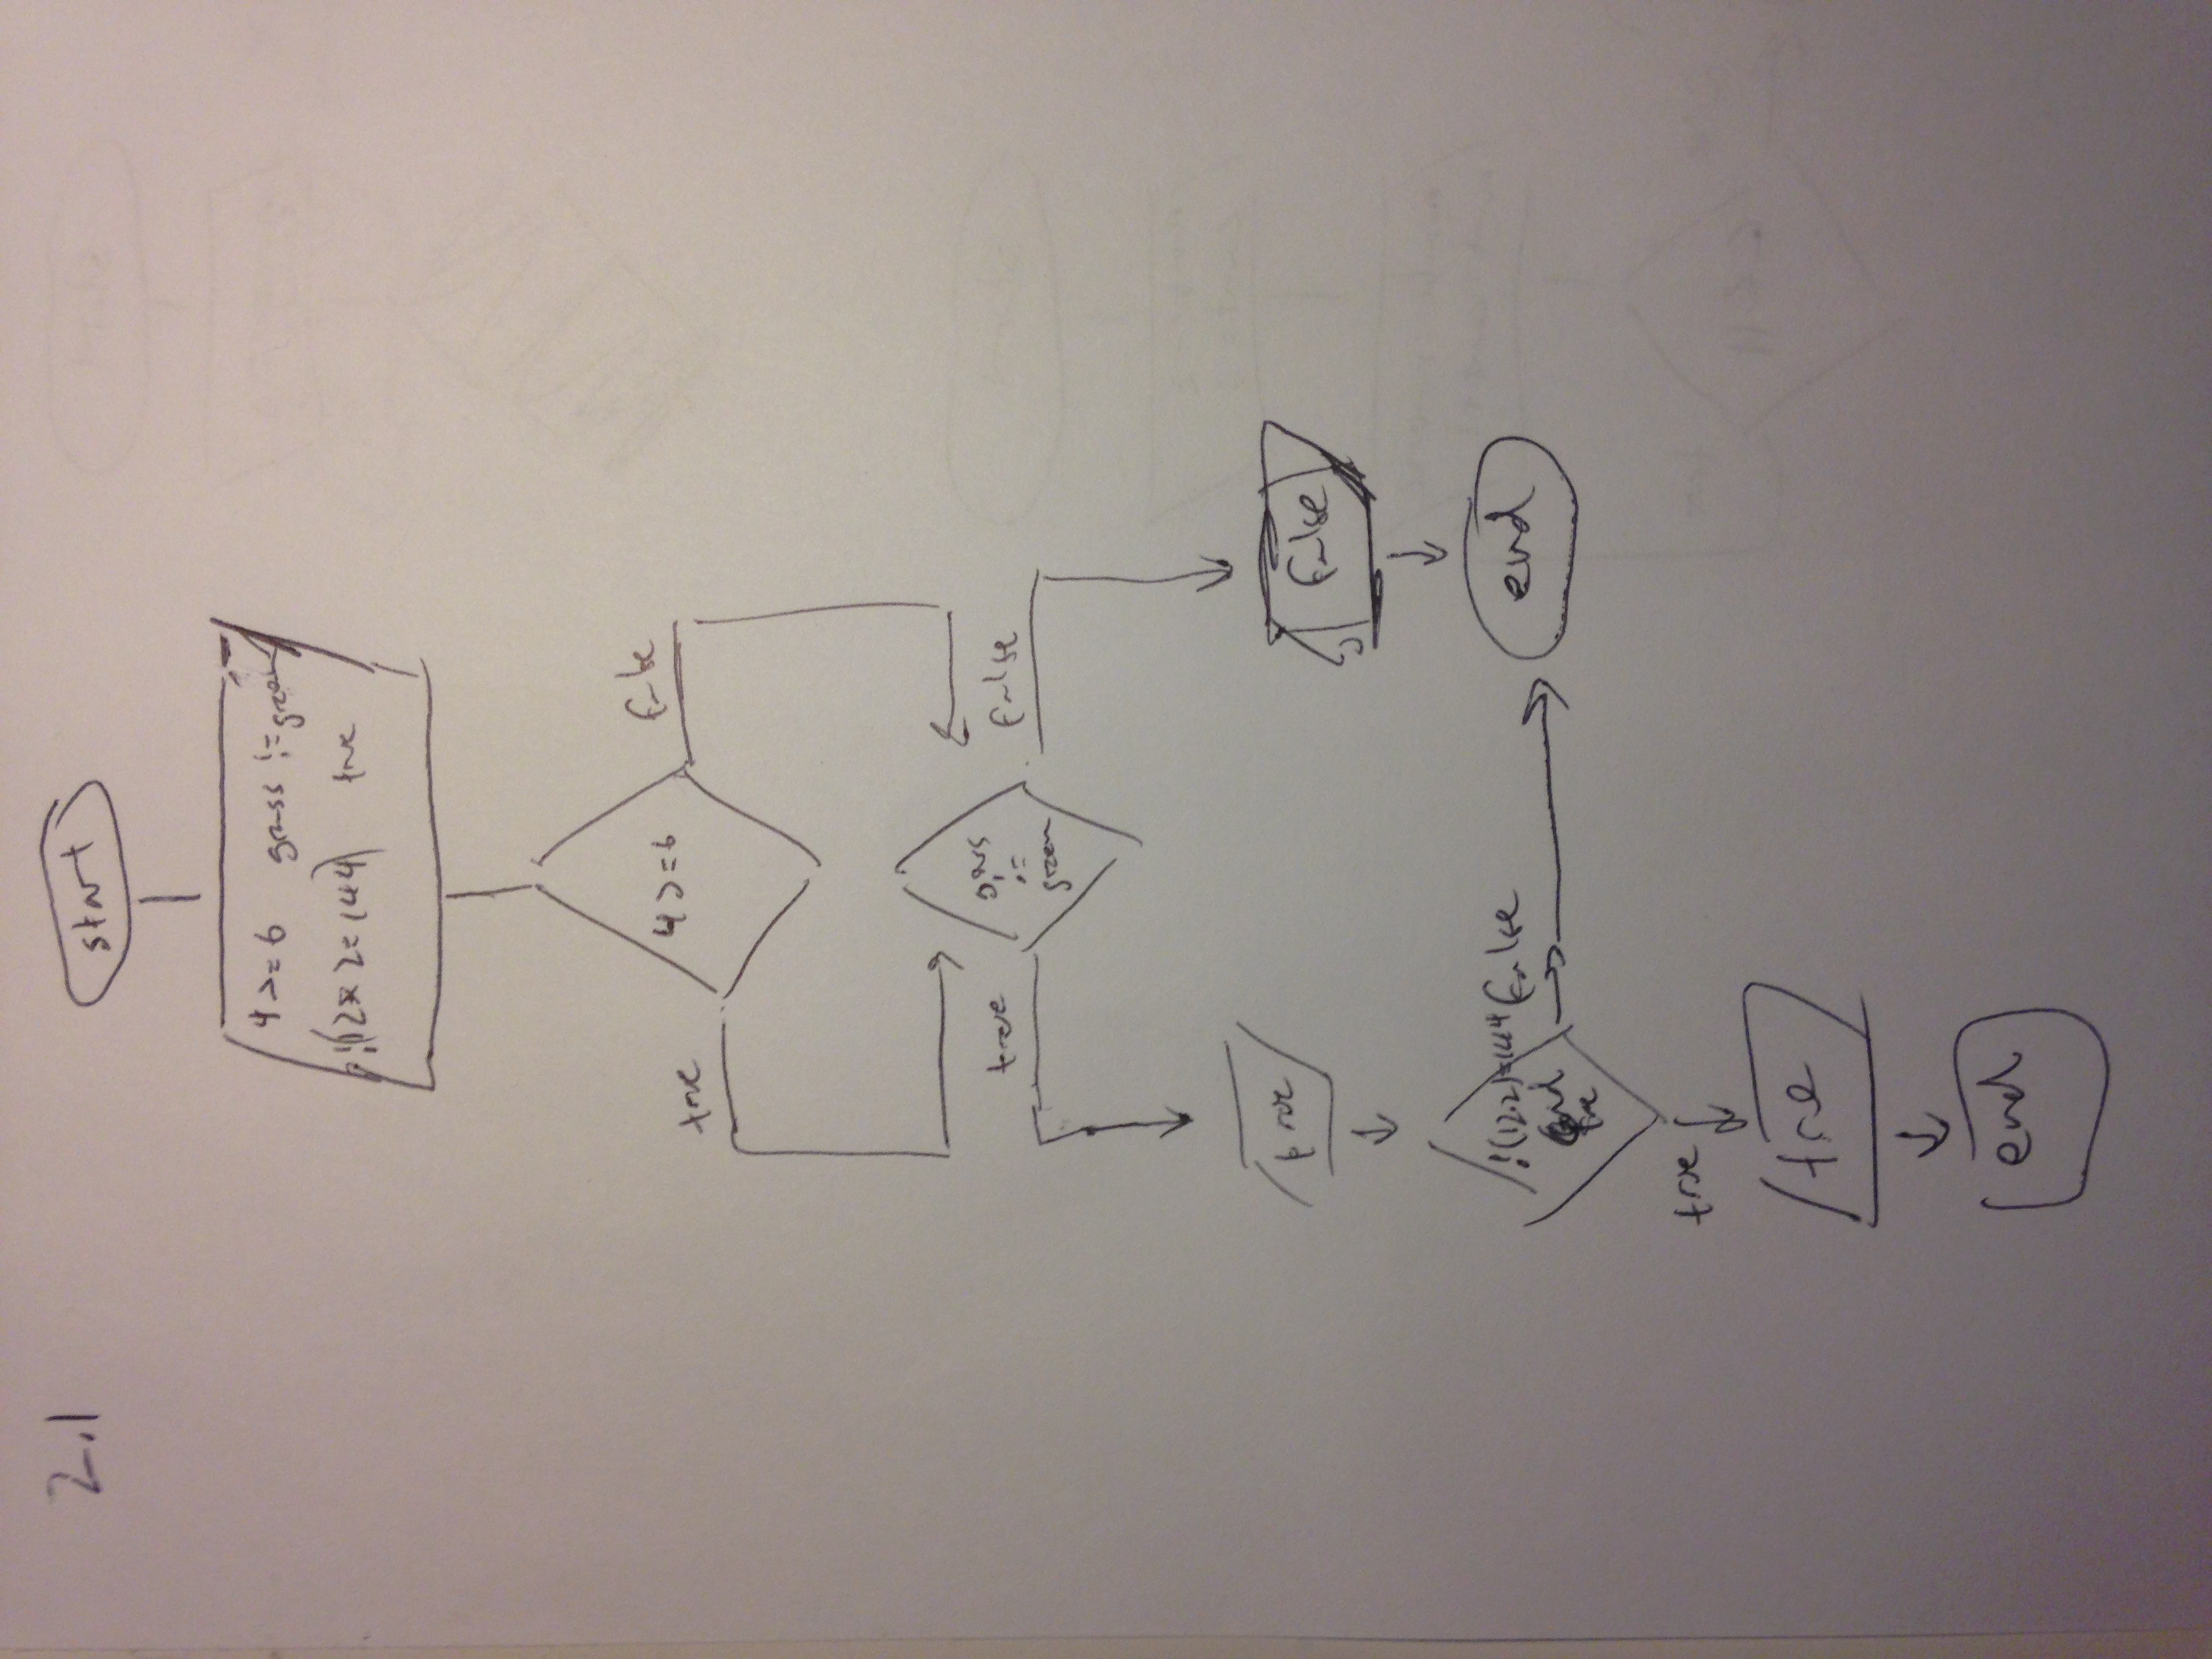 2.1
start
4 >= 6 grass != green
!(12 * 2 = 144) true
4 >= 6
false
true
grass
!=
green
true
false
true
false
!(12.2)=144 false
and
true
end
true
true
end